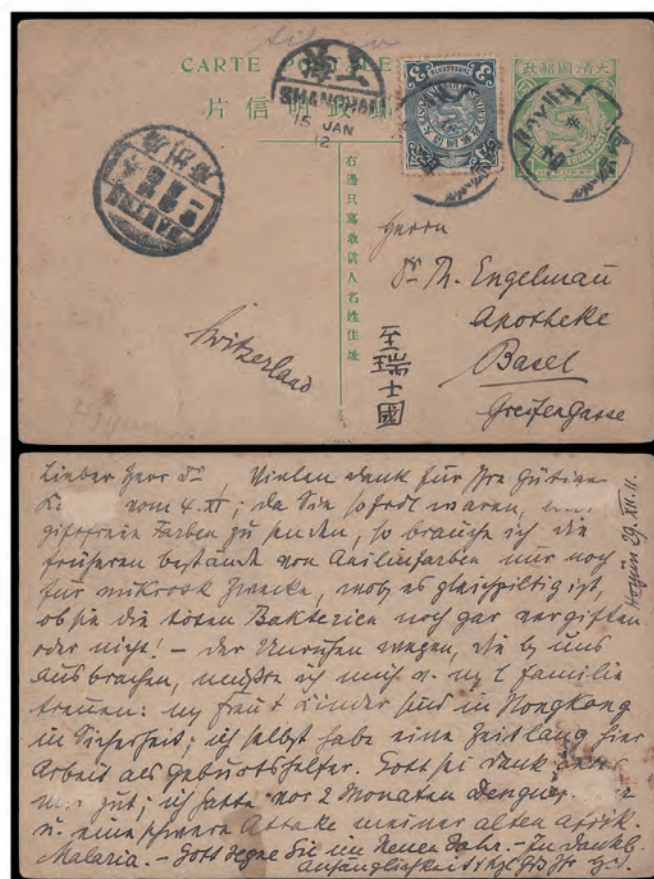 Siberia
CARTE POSTALE
大清國郵政
郵政明信片
上海
SHANGHAI
15 JAN
12
右邊只寫收信人名姓住址
Herrn
Dr Th. Engelmann
Apotheke
Basel
Greifengasse
Switzerland
至瑞士國
Hoyün 29. XII. 11.
Lieber Herr Dr Vielen Dank für Ihre gütigen
vom 4. XI; da Sie so froh waren,
giftfreie Farben zu senden, so brauche ich die
früheren Bestände von Anilinfarben nur noch
für mikrosk Zwecke, wob. es gleichgiltig ist,
ob sie die toten Bakterien noch gar vergiften
oder nicht! – Der Unruhen wegen, die b. uns
ausbrachen, mußte ich mich v. my l Familie
trennen: my Frau + Kinder sind in Hongkong
in Sicherheit; ich selbst habe eine Zeitlang hier
Arbeit als Geburtshelfer. Gott sei Dank
gut; ich hatte vor 2 Monaten Dengue
u. eine schwere Attake meiner alten afrik.
Malaria. – Gott segne Sie im Neuen Jahr. – In dankb.
Anhänglichkeit Ihr